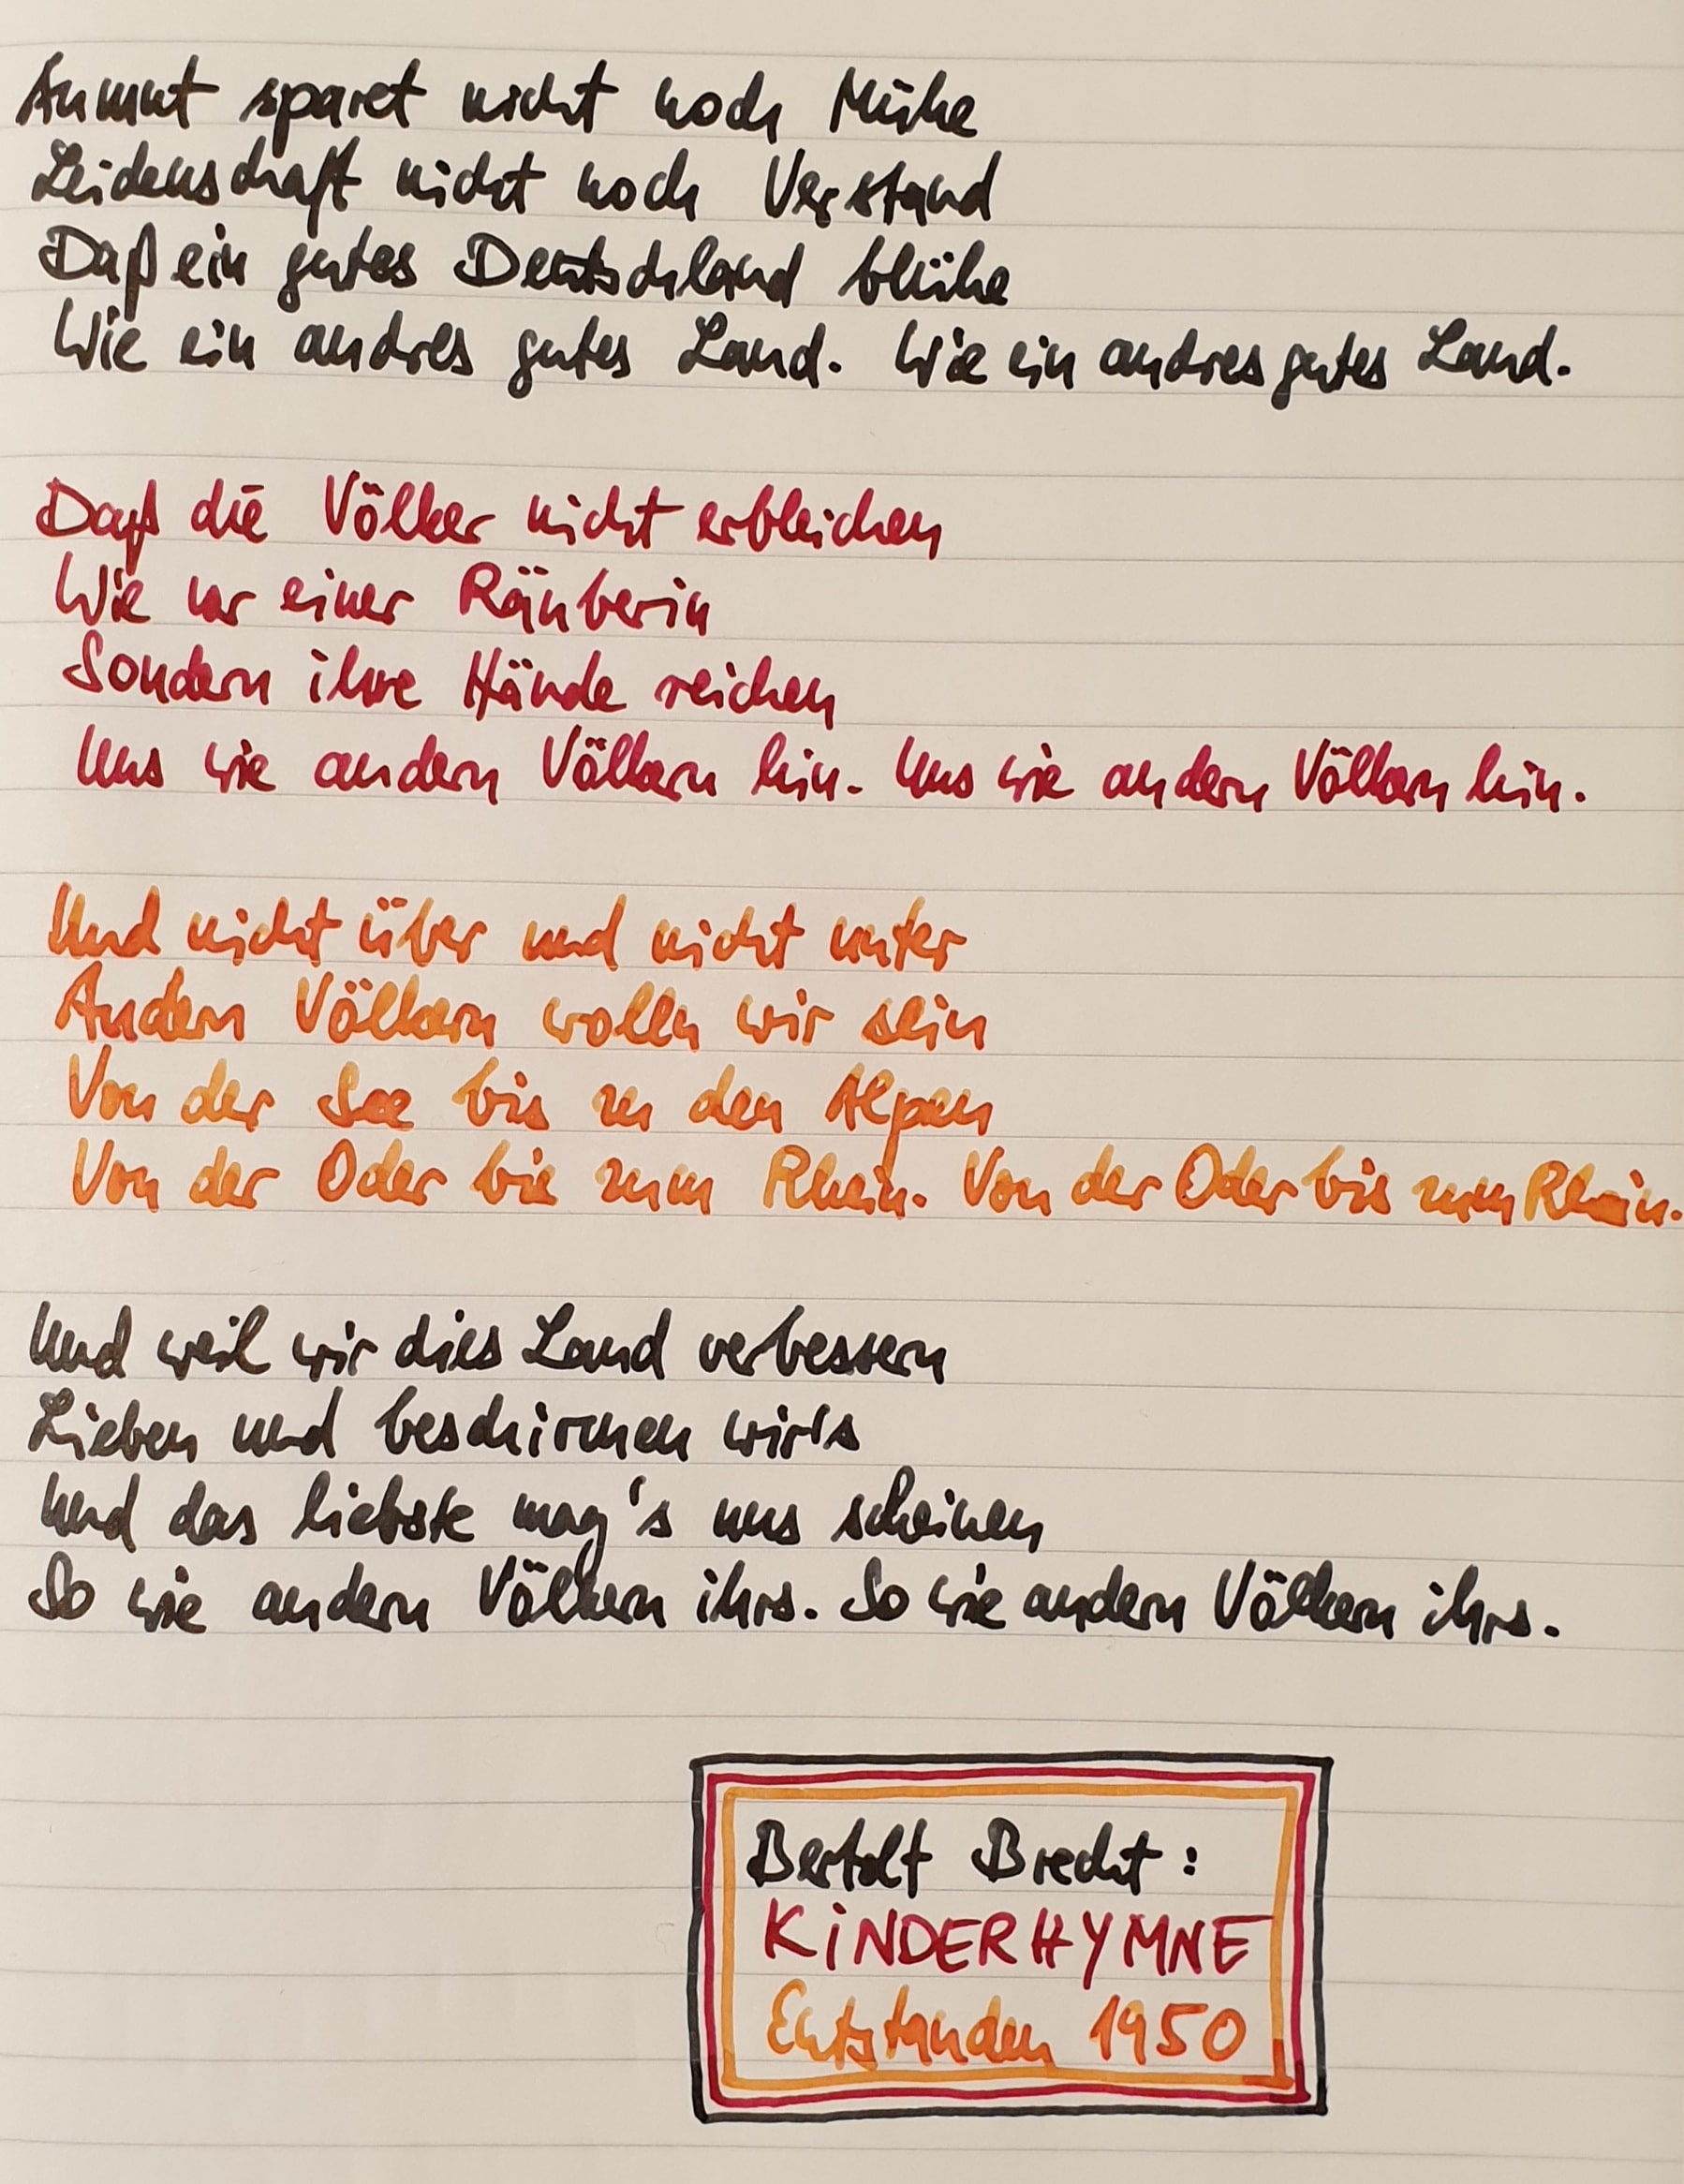 Anmut sparet nicht noch Mühe
Leidenschaft nicht noch Verstand
Daß ein gutes Deutschland blühe
Wie ein andres gutes Land. Wie ein andres gutes Land.
Daß die Völker nicht erbleichen
Wie vor einer Räuberin
Sondern ihre Hände reichen
Uns wie andern Völkern hin. Uns wie andern Völkern hin.
Und nicht über und nicht unter
Andern Völkern wolln wir sein
Von der See bis zu den Alpen
Von der Oder bis zum Rhein. Von der Oder bis zum Rhein.
Und weil wir dies Land verbessern
Lieben und beschirmen wir's
Und das liebste mag's uns scheinen
So wie andern Völkern ihrs. So wie andern Völkern ihrs.
Bertolt Brecht:
KiNDERHYMNE
Entstanden 1950